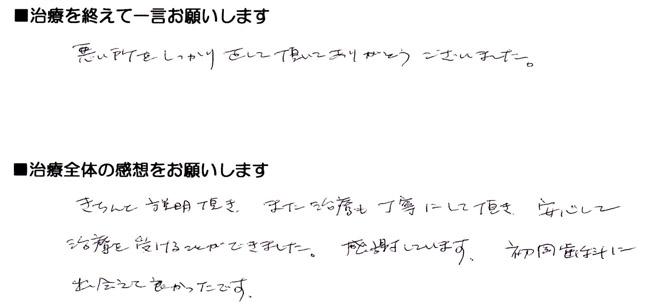 ■治療を終えて一言お願いします
悪い所をしっかり直して頂いてありがとうございました。
■治療全体の感想をお願いします
きちんと説明頂き、また治療も丁寧にして頂き、安心して
治療を受けることができました。感謝しています。初岡歯科に
出会えて良かったです。